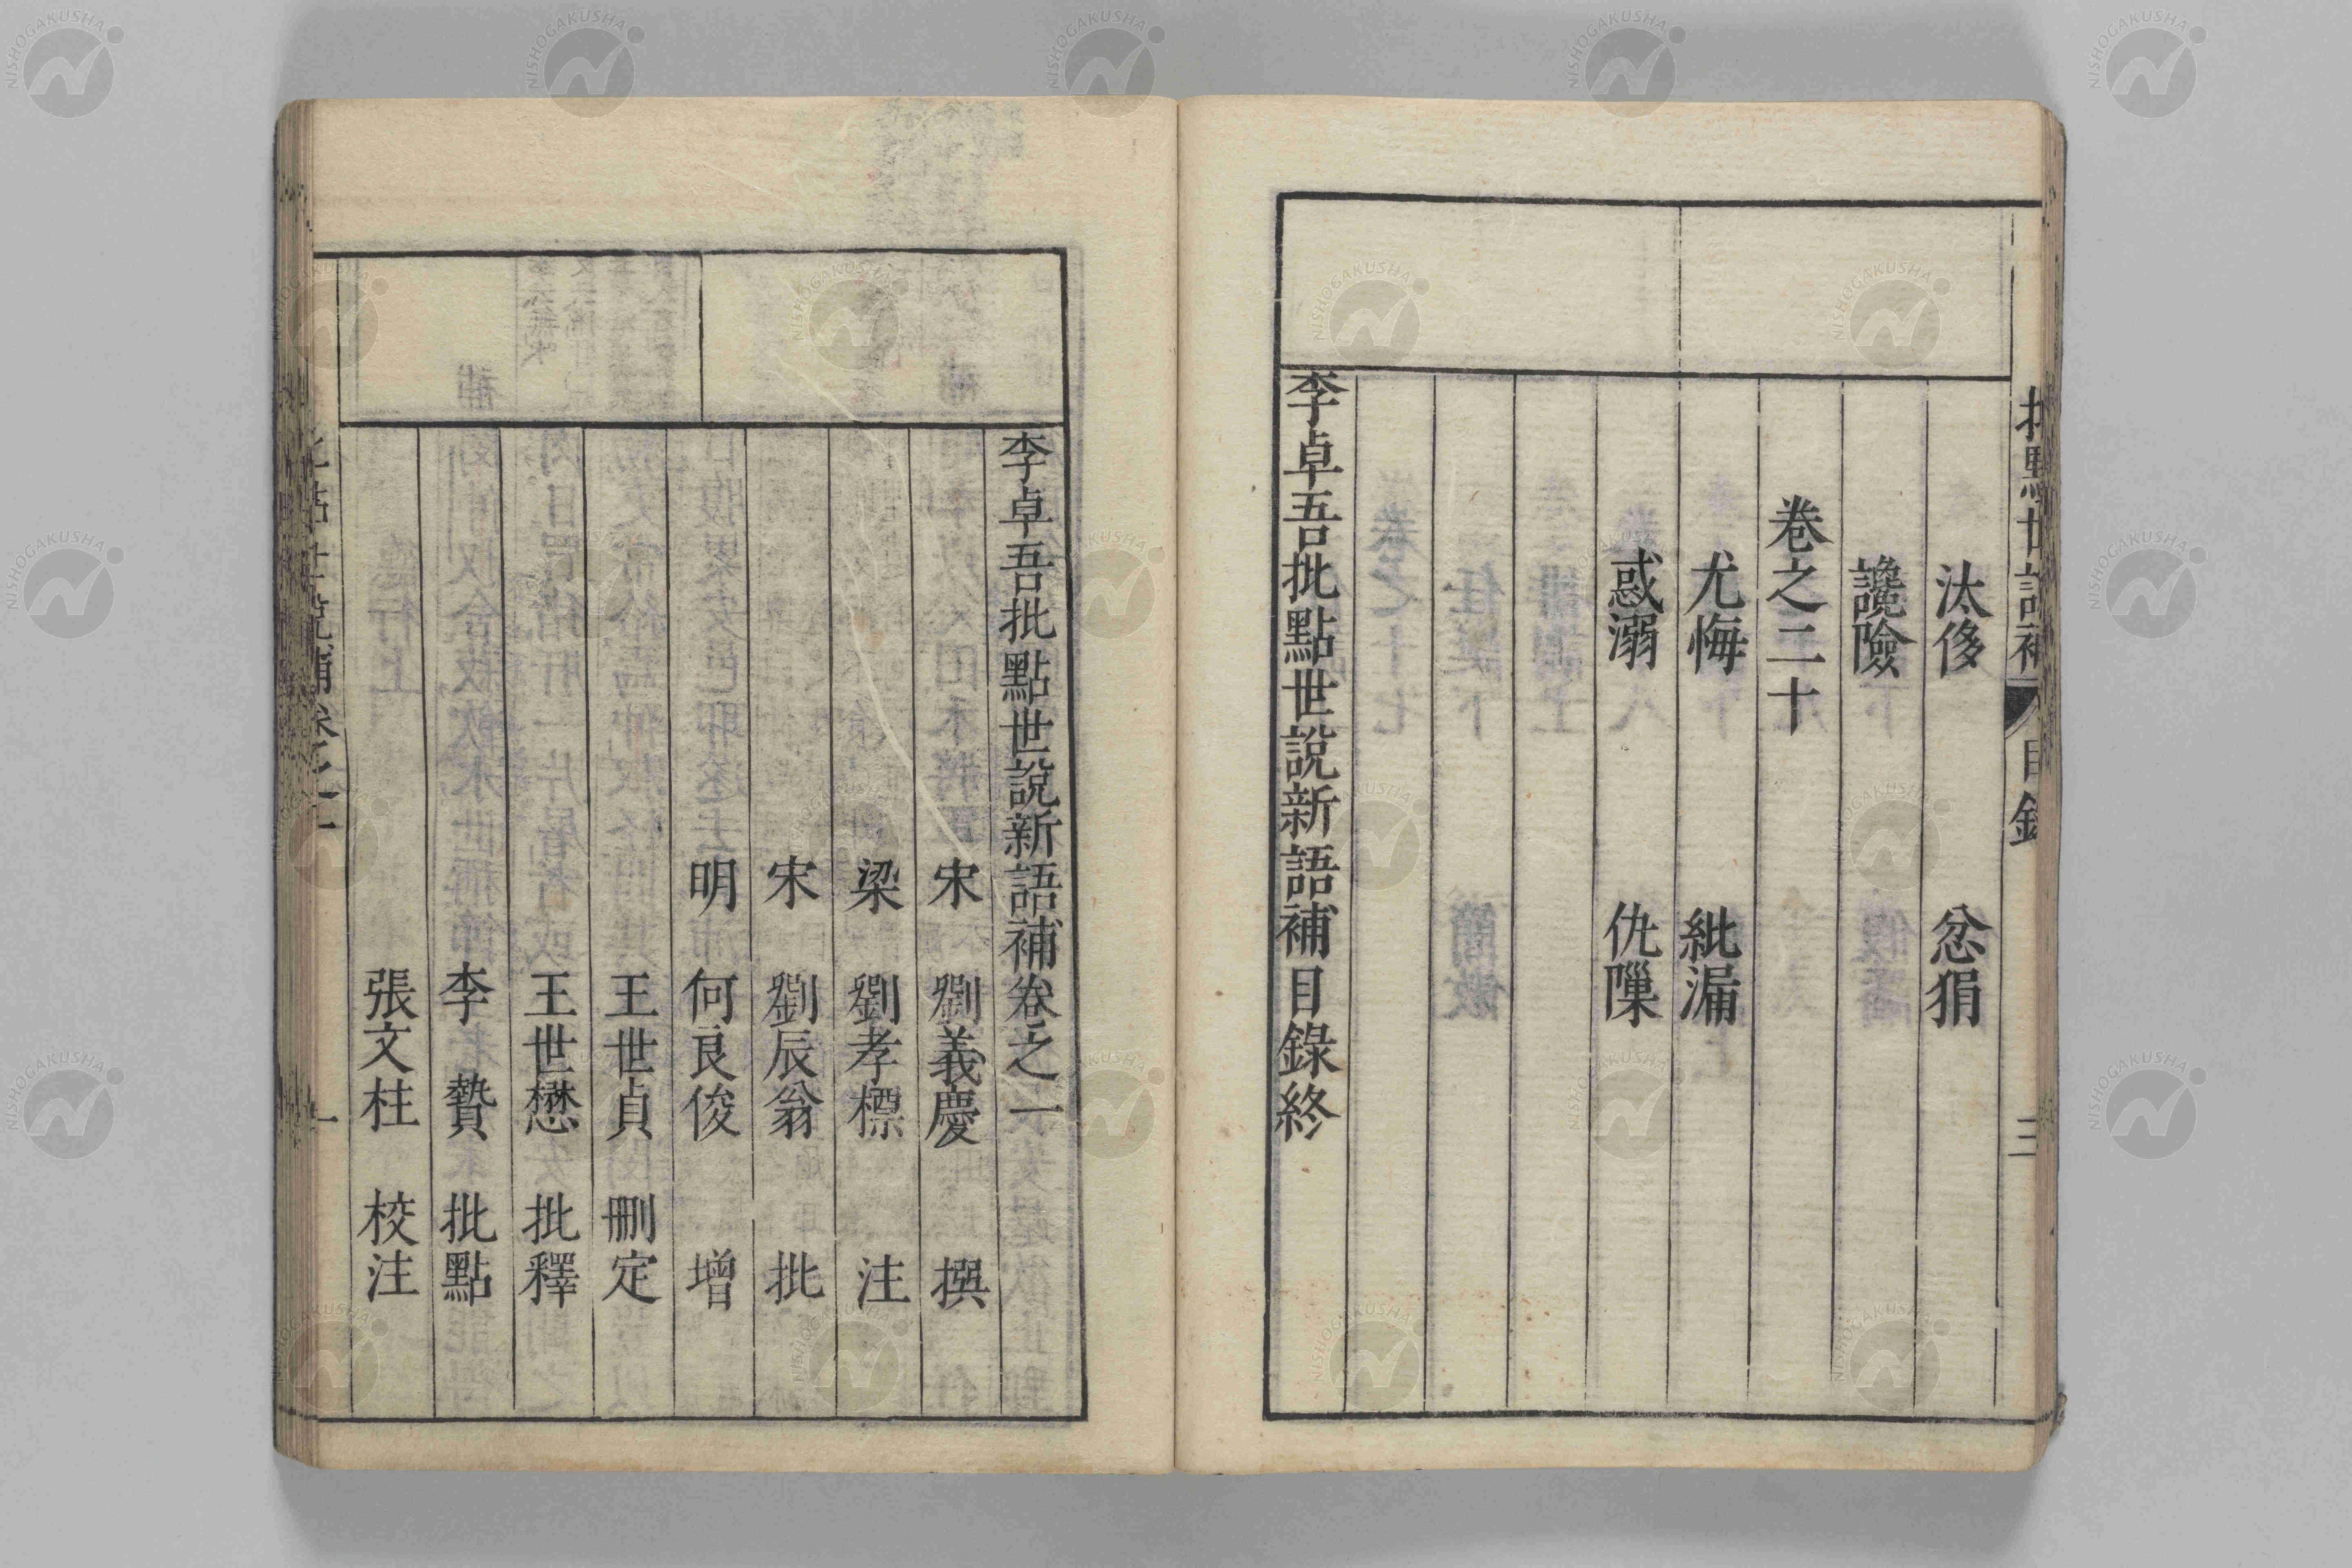 汰侈 忿狷
讒險
卷之二十
尤悔 紕漏
惑溺 仇隟
李卓吾批點世說新語補目錄終
李卓吾批點世說新語補卷之一
宋 劉義慶 撰
梁 劉孝標 注
宋 劉辰翁 批
明 何良俊 增
王世貞 刪定
王世懋 批釋
李贄 批點
張文柱 校注
NISHOGAKUSHA